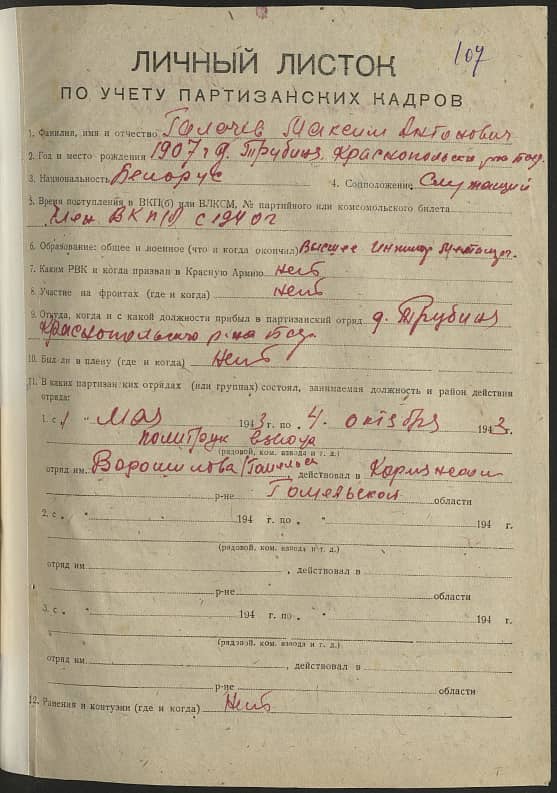 107
ЛИЧНЫЙ ЛИСТОК
ПО УЧЕТУ ПАРТИЗАНСКИХ КАДРОВ
1. Фамилия, имя и отчество Максим Антонович
2. Год и место рождения 1907 г д. Трубиня Краснопольски
3. Национальность Белорус 4. Соцположение Служащий
5. Время поступления в ВКП(б) или ВЛКСМ, № партийного или комсомольского билета
Член ВКП(б) с 1940 г
6. Образование: общее и военное (что и когда окончил) Высшее
7. Каким РВК и когда призван в Красную Армию нет
8. Участие на фронтах (где и когда) нет
9. Откуда, когда и с какой должности прибыл в партизанский отряд д. Трубиня
Краснопольского р-на
10. Был ли в плену (где и когда) Нет
11. В каких партизанских отрядах (или группах) состоял, занимаемая должность и район действия
отряда:
1. с 1 " мая 1943 г. по 4. октября 1943 г.
политрук взвода
(рядовой, ком. взвода и т. д.)
отряд им. Ворошилова действовал в
р-не Гомельской области
2. с " 194 г. по " 194 г.
(рядовой, ком. взвода и т. д.)
отряд им. , действовал в
р-не области
3. с " 194 г. по " 194 г.
(рядовой, ком. взвода и т. д.)
отряд им. , действовал в
р-не области
12. Ранения и контузии (где и когда) Нет